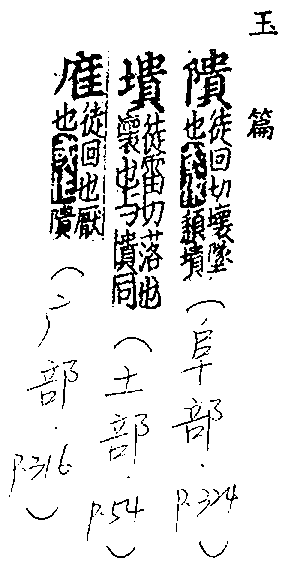 玉篇
隤徒回切壞墜
也或作頹墤(阜部.p.324)
墤徒雷切落也
壞也与隤同(土部.p.54)
㢈徒回也厭
也或作隤(广部.p.316)